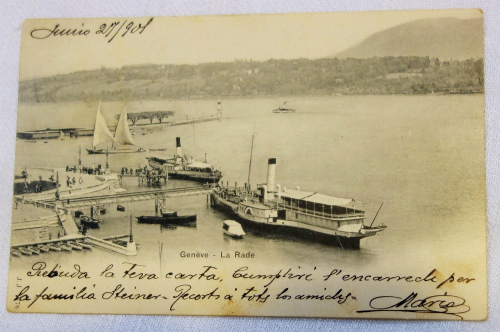 Junio 27/901
Genève - La Rade
Rebuda la teva carta. Cumpliré l'encarrech per
la familia Steiner - Recorts á tots los amichs -
Maria